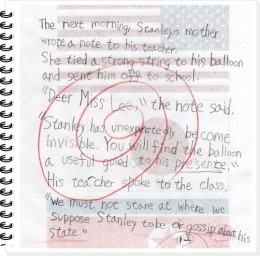 The next morning, Stanley's mother
wrote a note to his teacher.
She tied a strong string to his balloon
and sent him off to school.
"Dear Miss Lee," the note said.
"Stanley has unexpectedly become
invisible. You will find the balloon
a useful guied to his presente."
His teacher spoke to the class.
"We must not stare at where we
suppose Stanley to be or gossip about his
state."